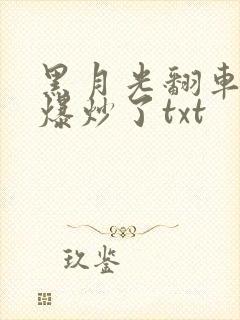 黑月光翻車
爆炒了txt
玖鉴